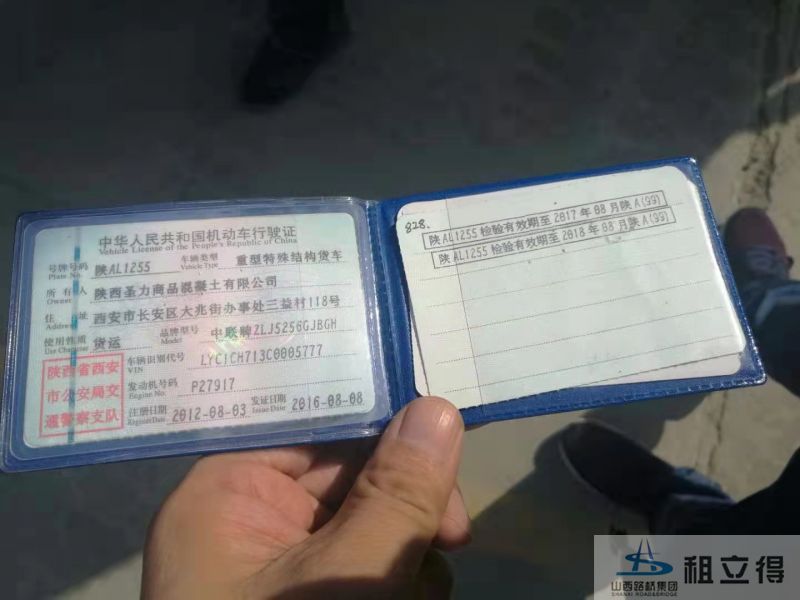 中华人民共和国机动车行驶证
Vehicle License of the People's Republic of China
号牌号码 陕AL1255 车辆类型 重型特殊结构货车
Plate No. Vehicle Type
所有人 陕西圣力商品混凝土有限公司
Owner
住址 西安市长安区大兆街办事处三益村118号
Address
使用性质 货运 品牌型号 中联牌ZLJ5256GJBGH
Use Character Model
陕西省西安
市公安局交
通警察支队
车辆识别代号 LYC1CH713C0005777
VIN
发动机号码 P27917
Engine No.
注册日期 2012-08-03 发证日期 2016-08-08
Register Date Issue Date
828.
陕AL1255检验有效期至2017年08月陕A(99)
陕AL1255检验有效期至2018年08月陕A(99)
山西路桥集团
SHANXI ROAD&BRIDGE
租立得